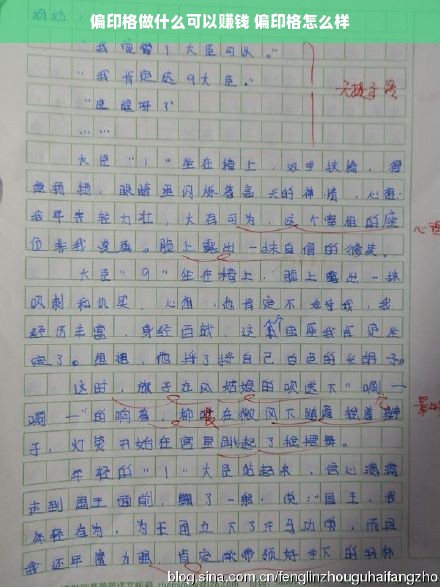 偏印格做什么可以赚钱 偏印格怎么样
"我觉得1大臣可以。"
"我肯定选9大臣。"
……
大臣"1"坐在椅上，双手扶椅，得
意扬扬，眼睛里闪烁着高兴的神情，心想：
我年轻力壮，大有可为，这个宰相的座
位非我莫属。脸上露出一抹自信的微笑。
大臣"9"坐在椅上，脸上露出一抹
讽刺和讥笑，心想，他肯定不如我，我
经历丰富，身经百战，这个宝座我肯定坐
定了。想着，他捋了捋自己白色的长胡子。
这时，旗子在风姑娘的吹送下"啁一
啁一"的响着，柳枝在微风下随着
子，灯笼开始在宫里跳起了摇摆舞。
年轻的"1"大臣站起来，信心满满
走到国王面前，鞠了一躬，说："国王，我
年轻有为，为王国立下了汗马功劳，而且
我还年富力强，肯定能带领好
无提示语
心理
blog.sina.com.cn/fenglinzhouguhaifangzho